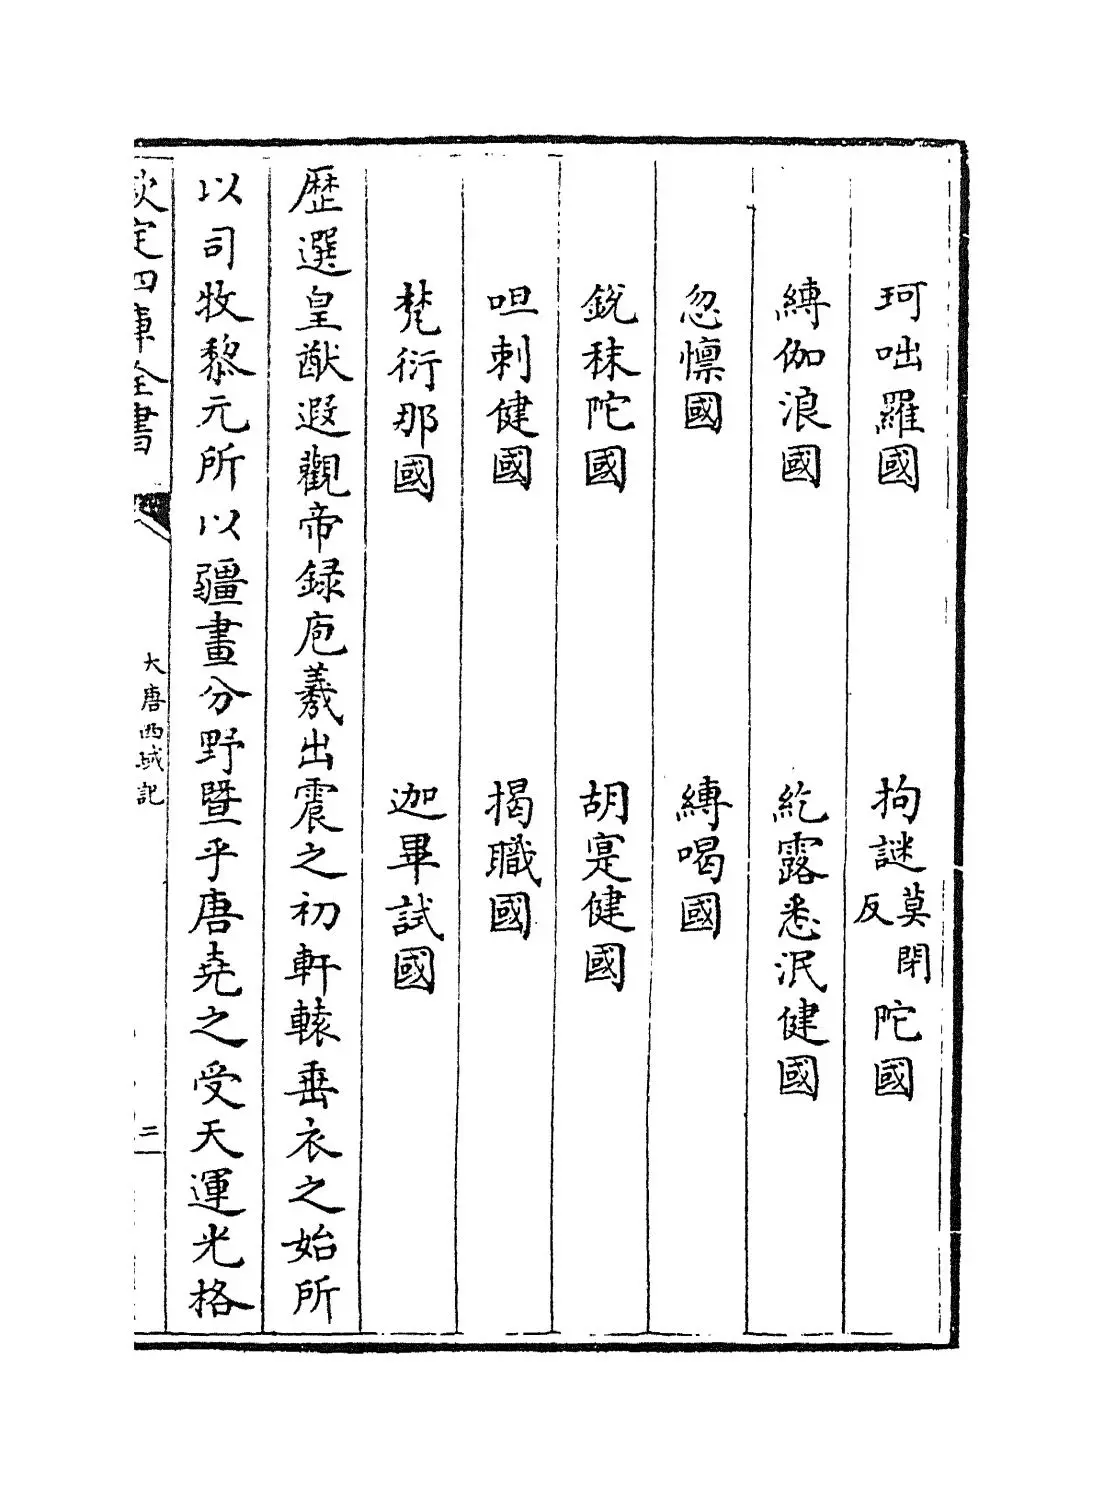 珂咄羅國 拘謎莫閉反陀國
縛伽浪國 紇露悉泯健國
忽懔國 縛喝國
銳秣陀國 胡寔健國
呾剌健國 揭職國
梵衍那國 迦畢試國
歴選皇猷遐觀帝録庖羲出震之初軒轅垂衣之始所
以司牧黎元所以疆畫分野暨乎唐堯之受天運光格
欽定四庫全書
大唐西域記
二